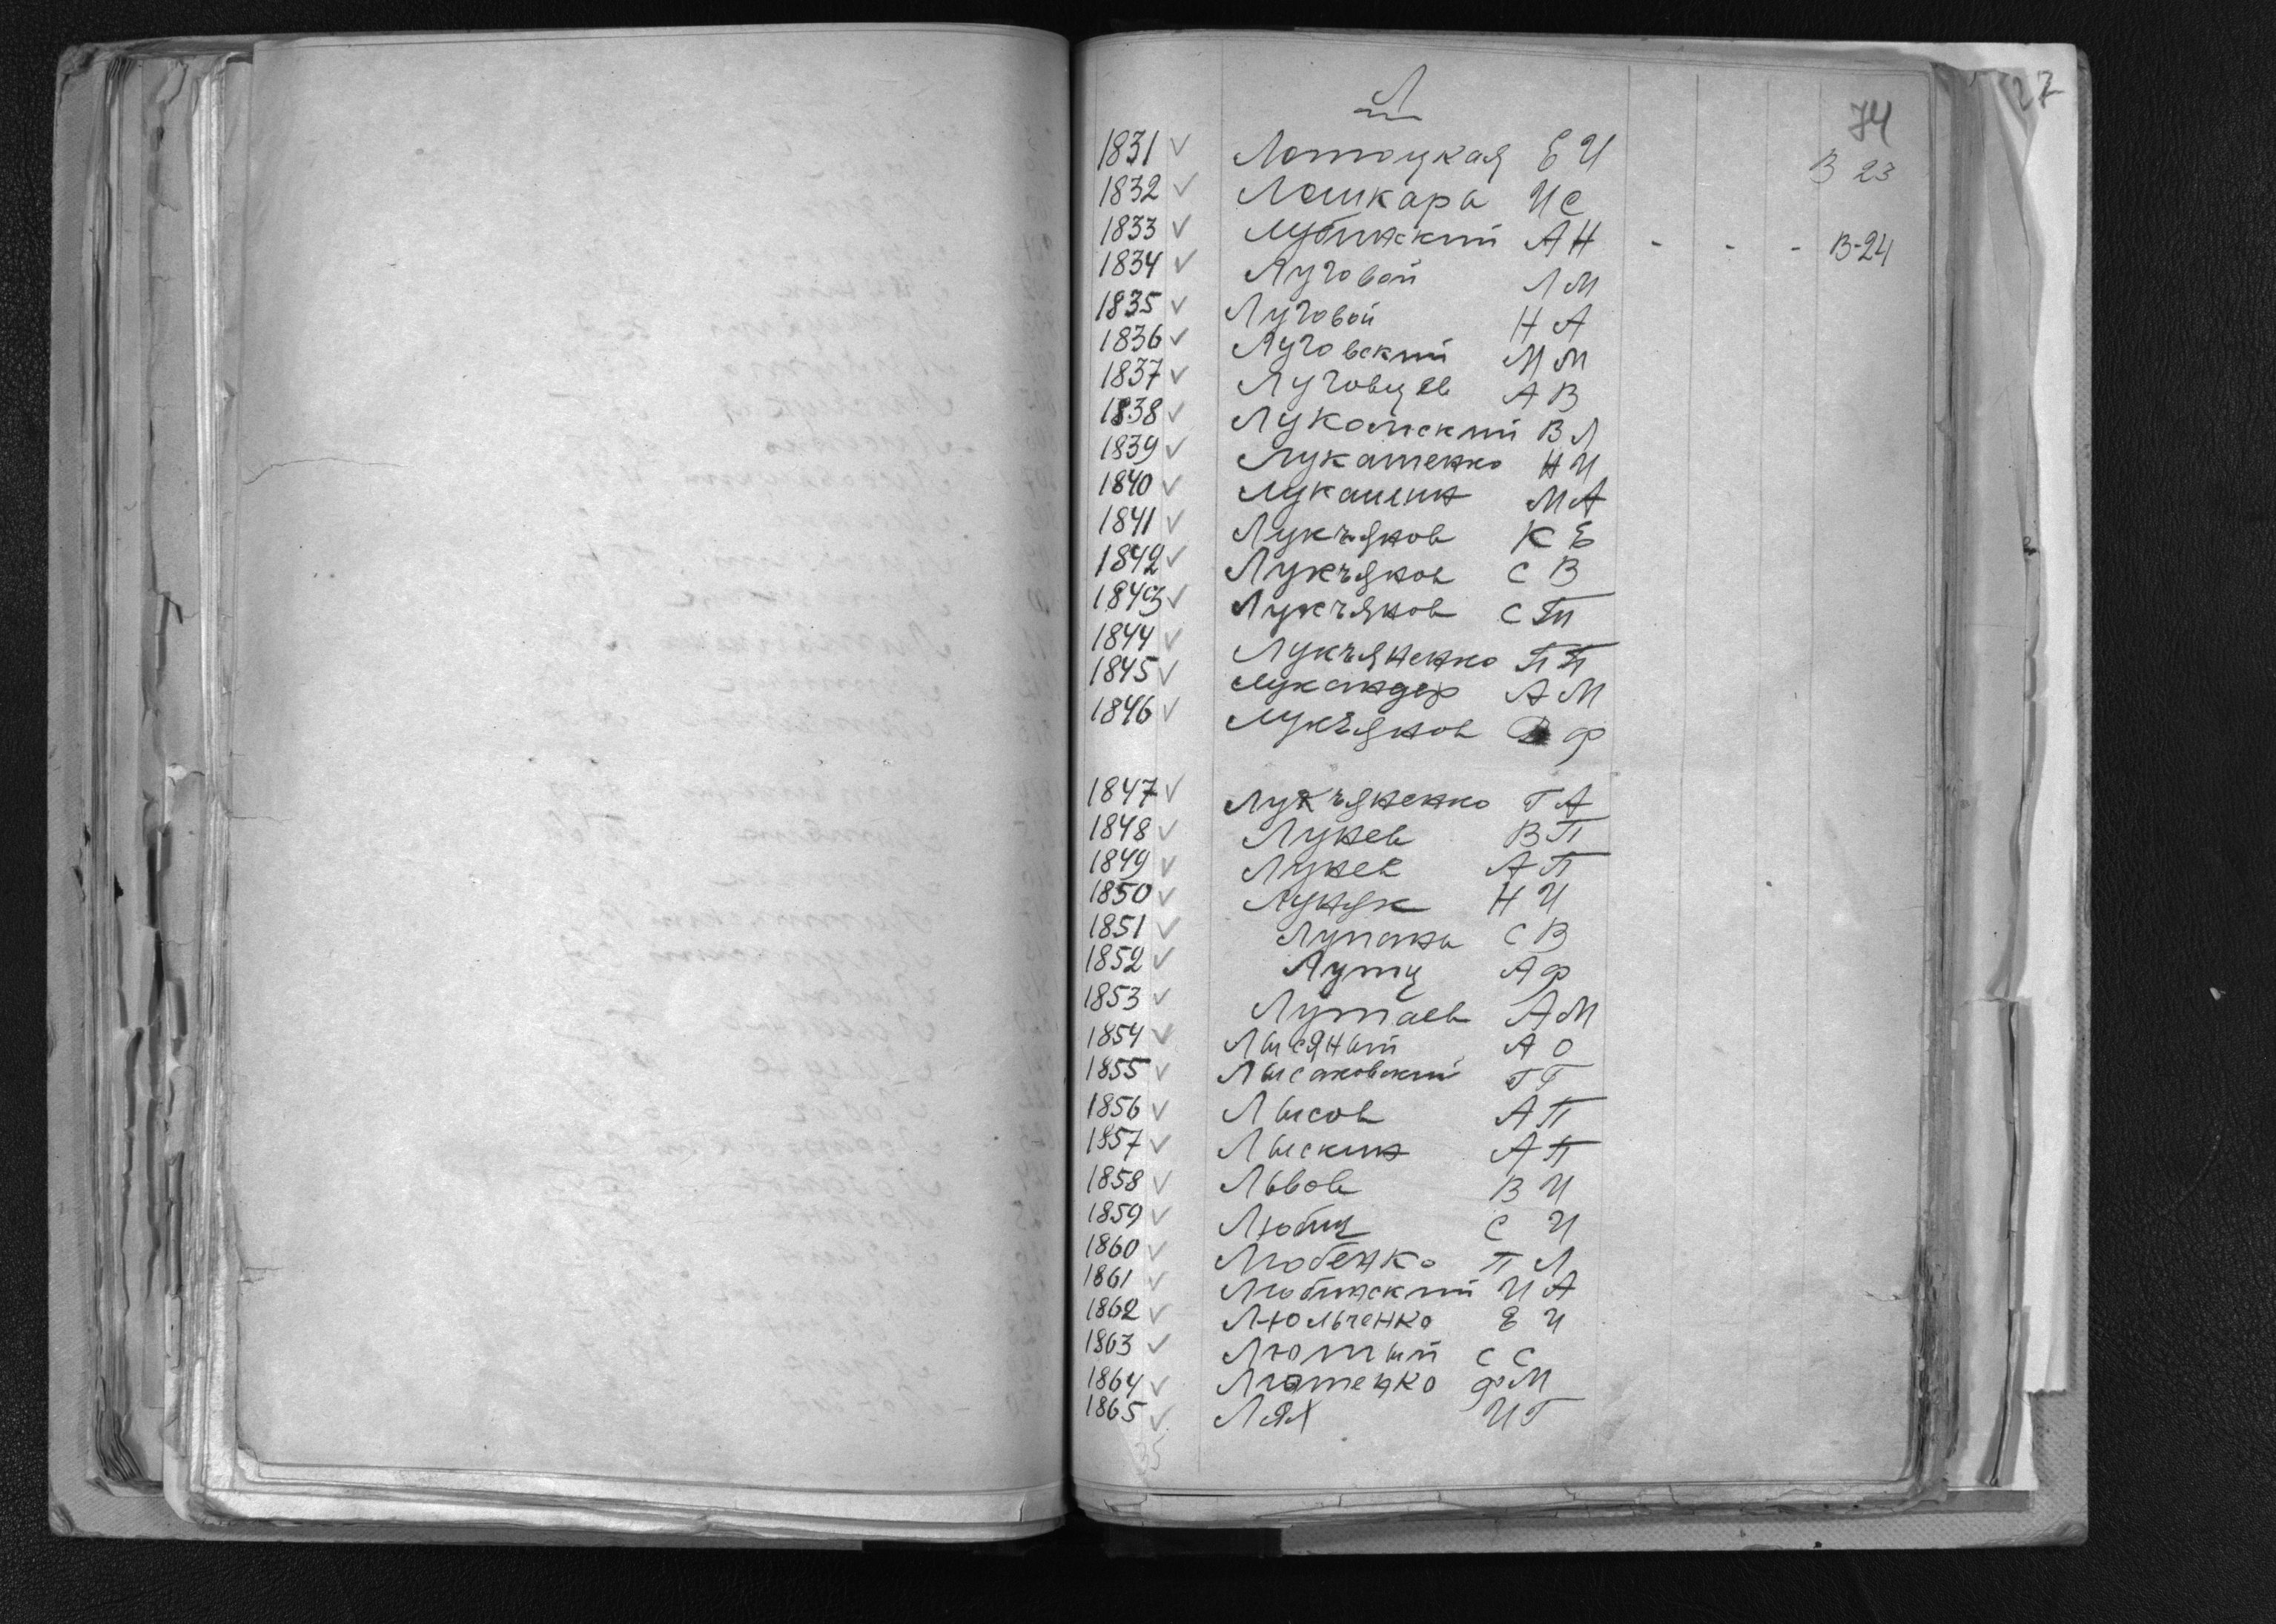 27
Л
74
1831 ✓ Лотоцкая Е И В 23
1832 ✓ Лошкара И С
1833 ✓ Лубинский А Н - - - В-24
1834 ✓ Луговой Л М
1835 ✓ Луговой Н А
1836 ✓ Луговский М М
1837 ✓ Луговцев А В
1838 ✓ Лукомский В Л
1839 ✓ Лукашенко Н И
1840 ✓ Лукашин М А
1841 ✓ Лукъянов К Е
1842 ✓ Лукъянов С В
1843 ✓ Лукъянов С П
1844 ✓ Лукъяненко П П
1845 ✓ А М
1846 ✓ Лукъянов Ф
1847 ✓ Лукъяненко Г А
1848 ✓ Лунев В П
1849 ✓ Лунев А П
1850 ✓ Луняк Н И
1851 ✓ С В
1852 ✓ Лутц А Ф
1853 ✓ Лутаев А М
1854 ✓ Лысяный А О
1855 ✓ Лысаковский Г Г
1856 ✓ Лысов А П
1857 ✓ Лыскин А П
1858 ✓ Львов В И
1859 ✓ С И
1860 ✓ Любенко П Л
1861 ✓ Любинский И А
1862 ✓ Люльченко Е И
1863 ✓ Лютый С С
1864 ✓ Лютенко Ф М
1865 ✓ Лях И Г
35